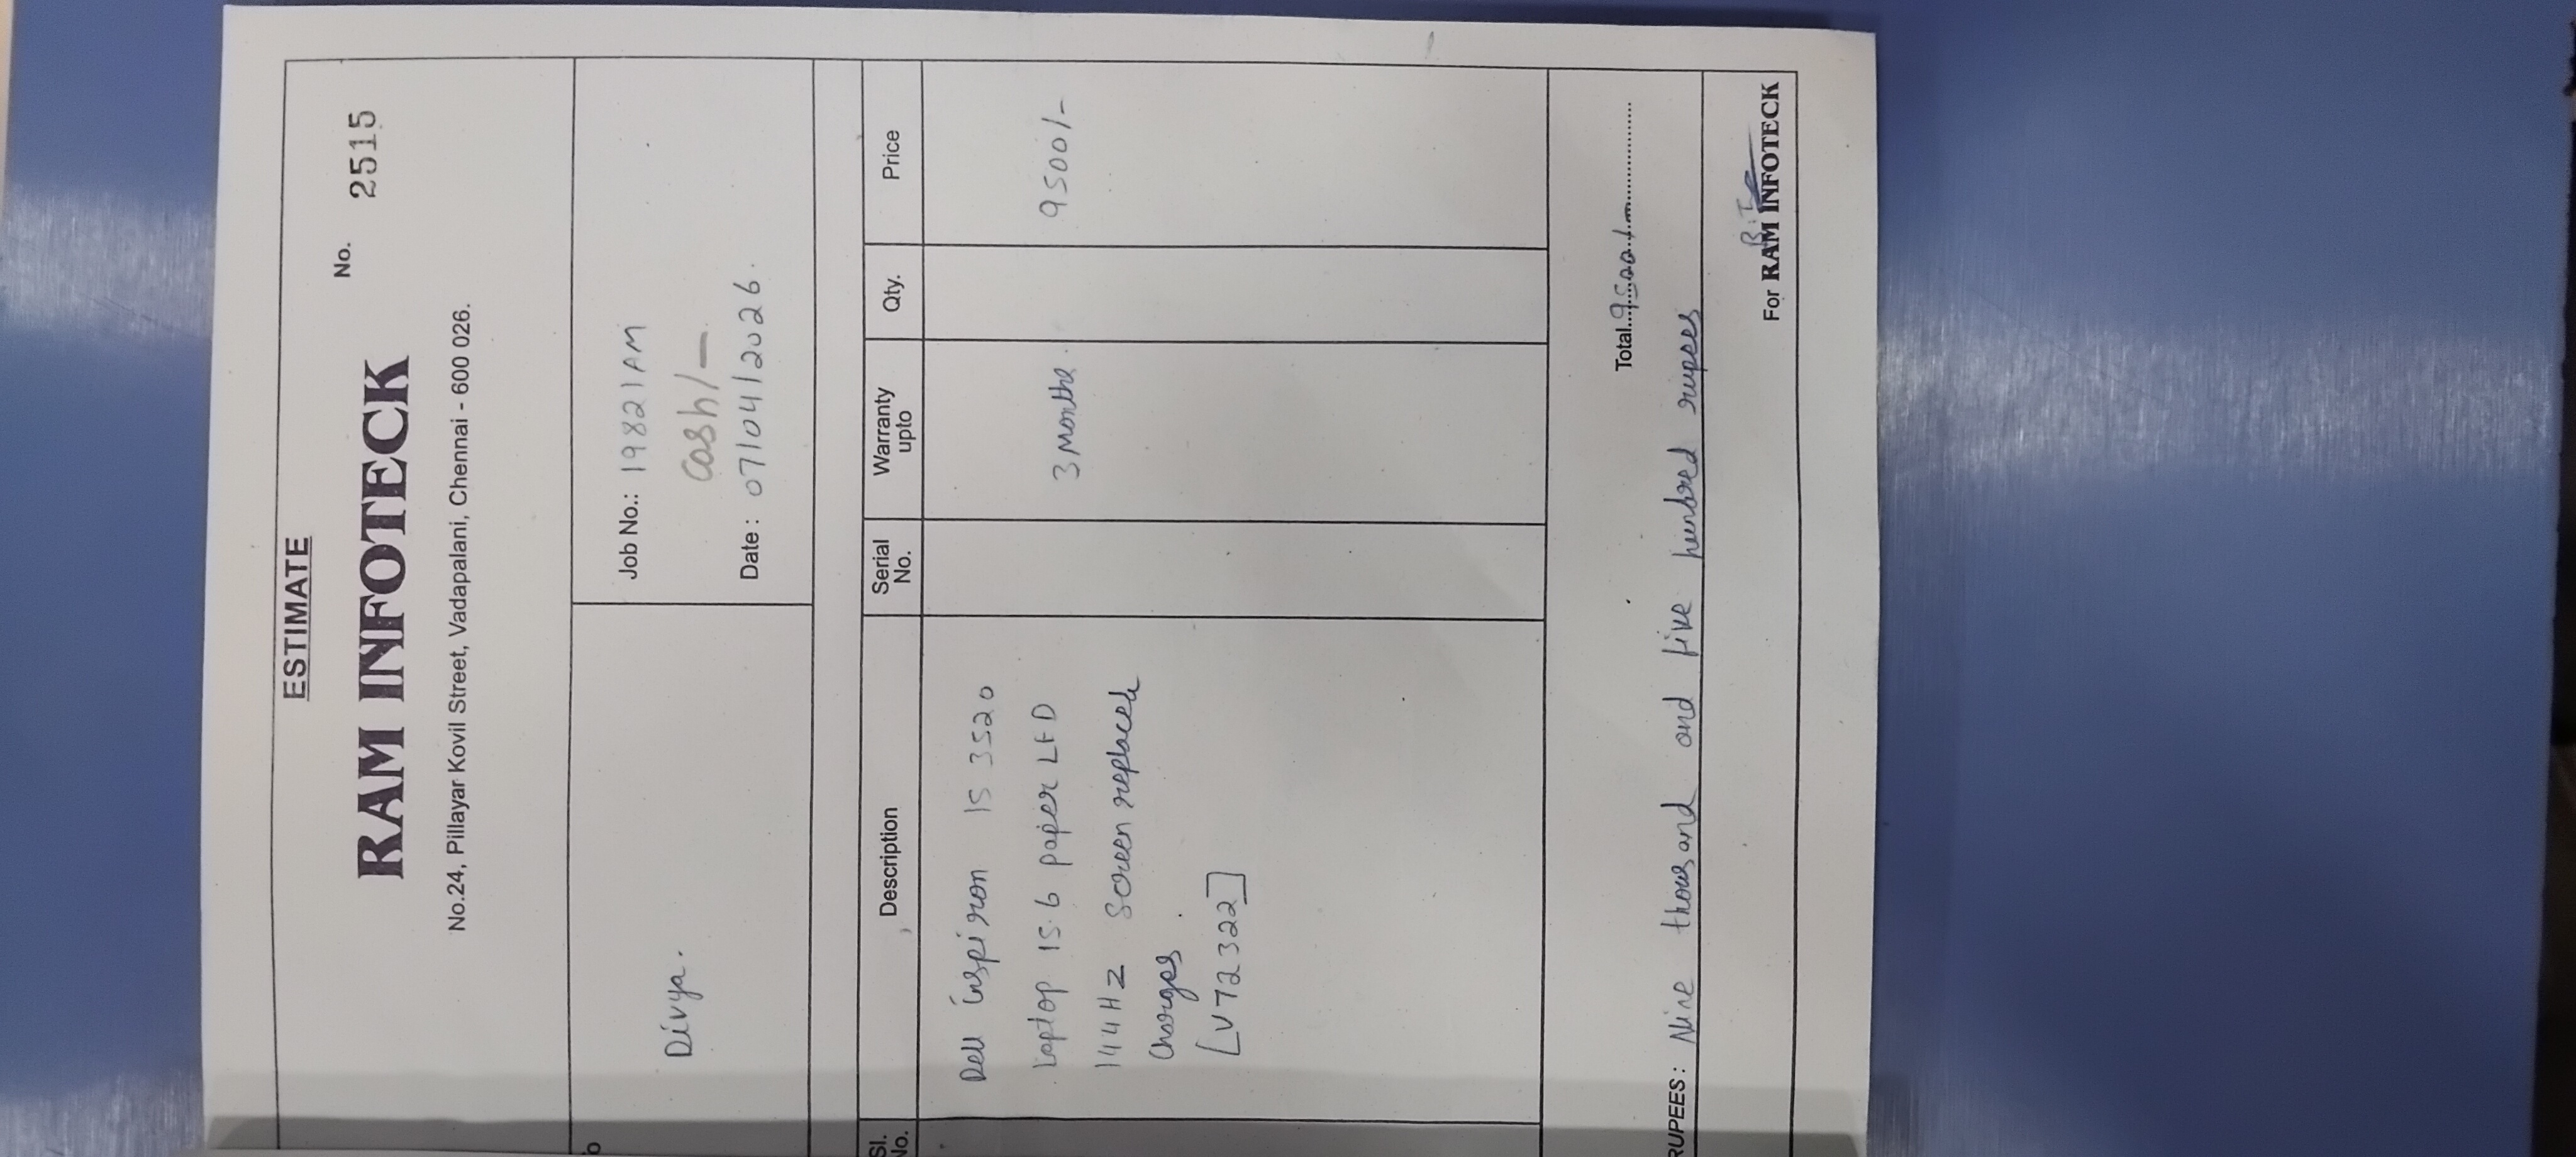 ESTIMATE
RAM INFOTECK
No. 2515
No.24, Pillayar Kovil Street, Vadapalani, Chennai - 600 026.
Divya.
Job No.: 19821AM
Cash/-
Date : 07/04/2026.
Sl. No. Description Serial No. Warranty upto Qty. Price
Dell inspiron 15 3520
Laptop 15.6 paper LED 3 Months. 9500/-
144HZ Screen replaced
Charges
[V72322]
Total 9500/-
RUPEES: Nine thousand and five hundred rupees
For RAM INFOTECK